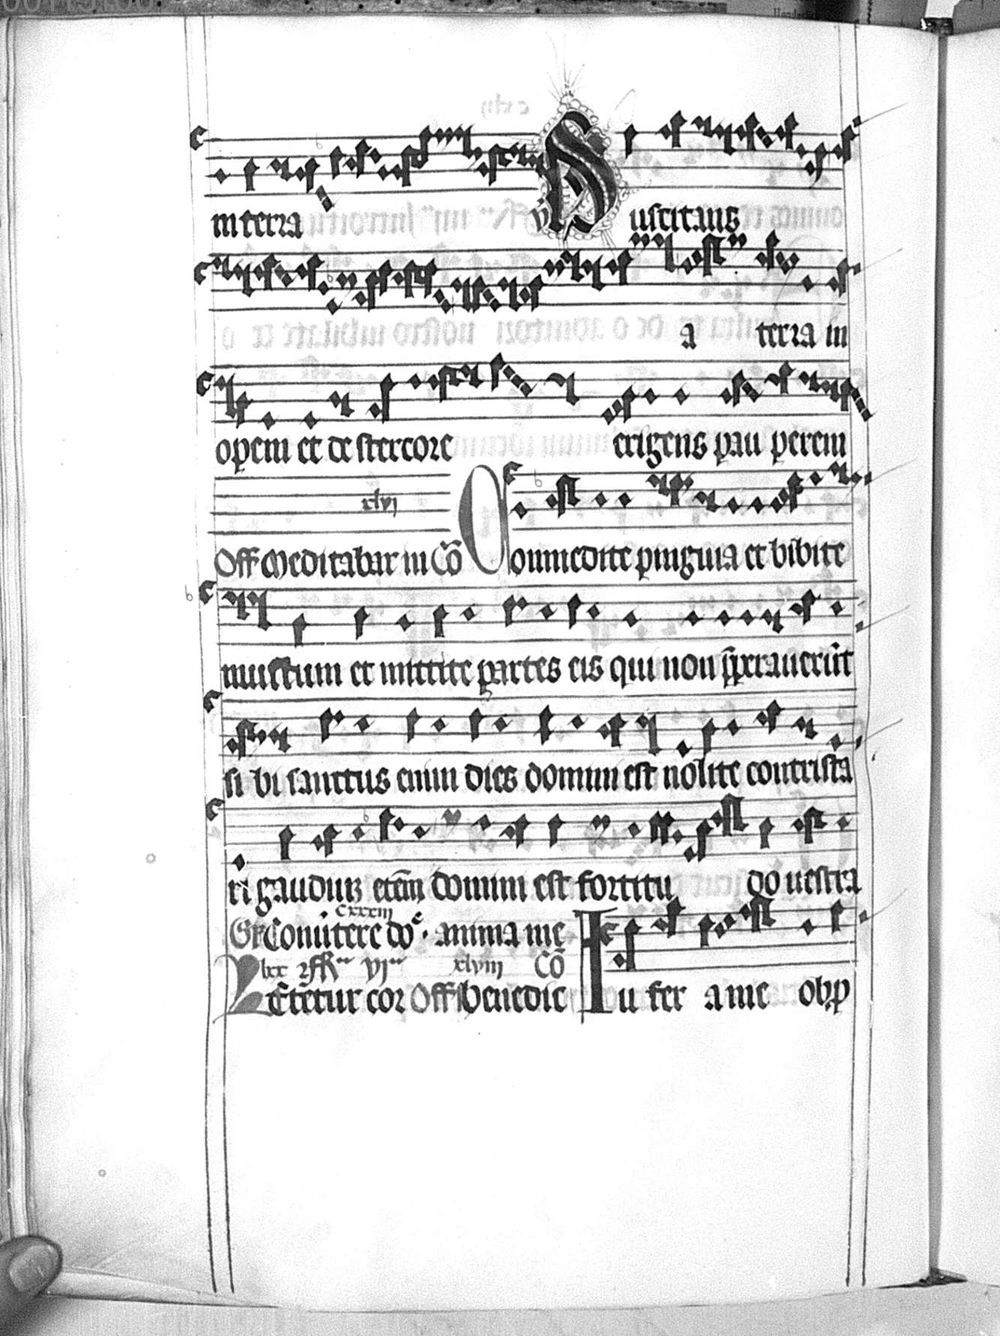 in terra v̄ Suscitans
a terra in
opem et de stercore erigens pau perem
xlvi
Off Meditabar in Cō Comedite pinguia et bibite
mulsum et mittite partes eis qui non p̄p̄arauerūt
si bi sanctus enim dies domini est nolite contrista
ri gaudium etēm domini est fortitu do vestra
cxxxiii
Gr Conūtere do᷎ · anima me
lxx vi xlviii Cō
Letetur cor Off Benedic In fer a me obp̄